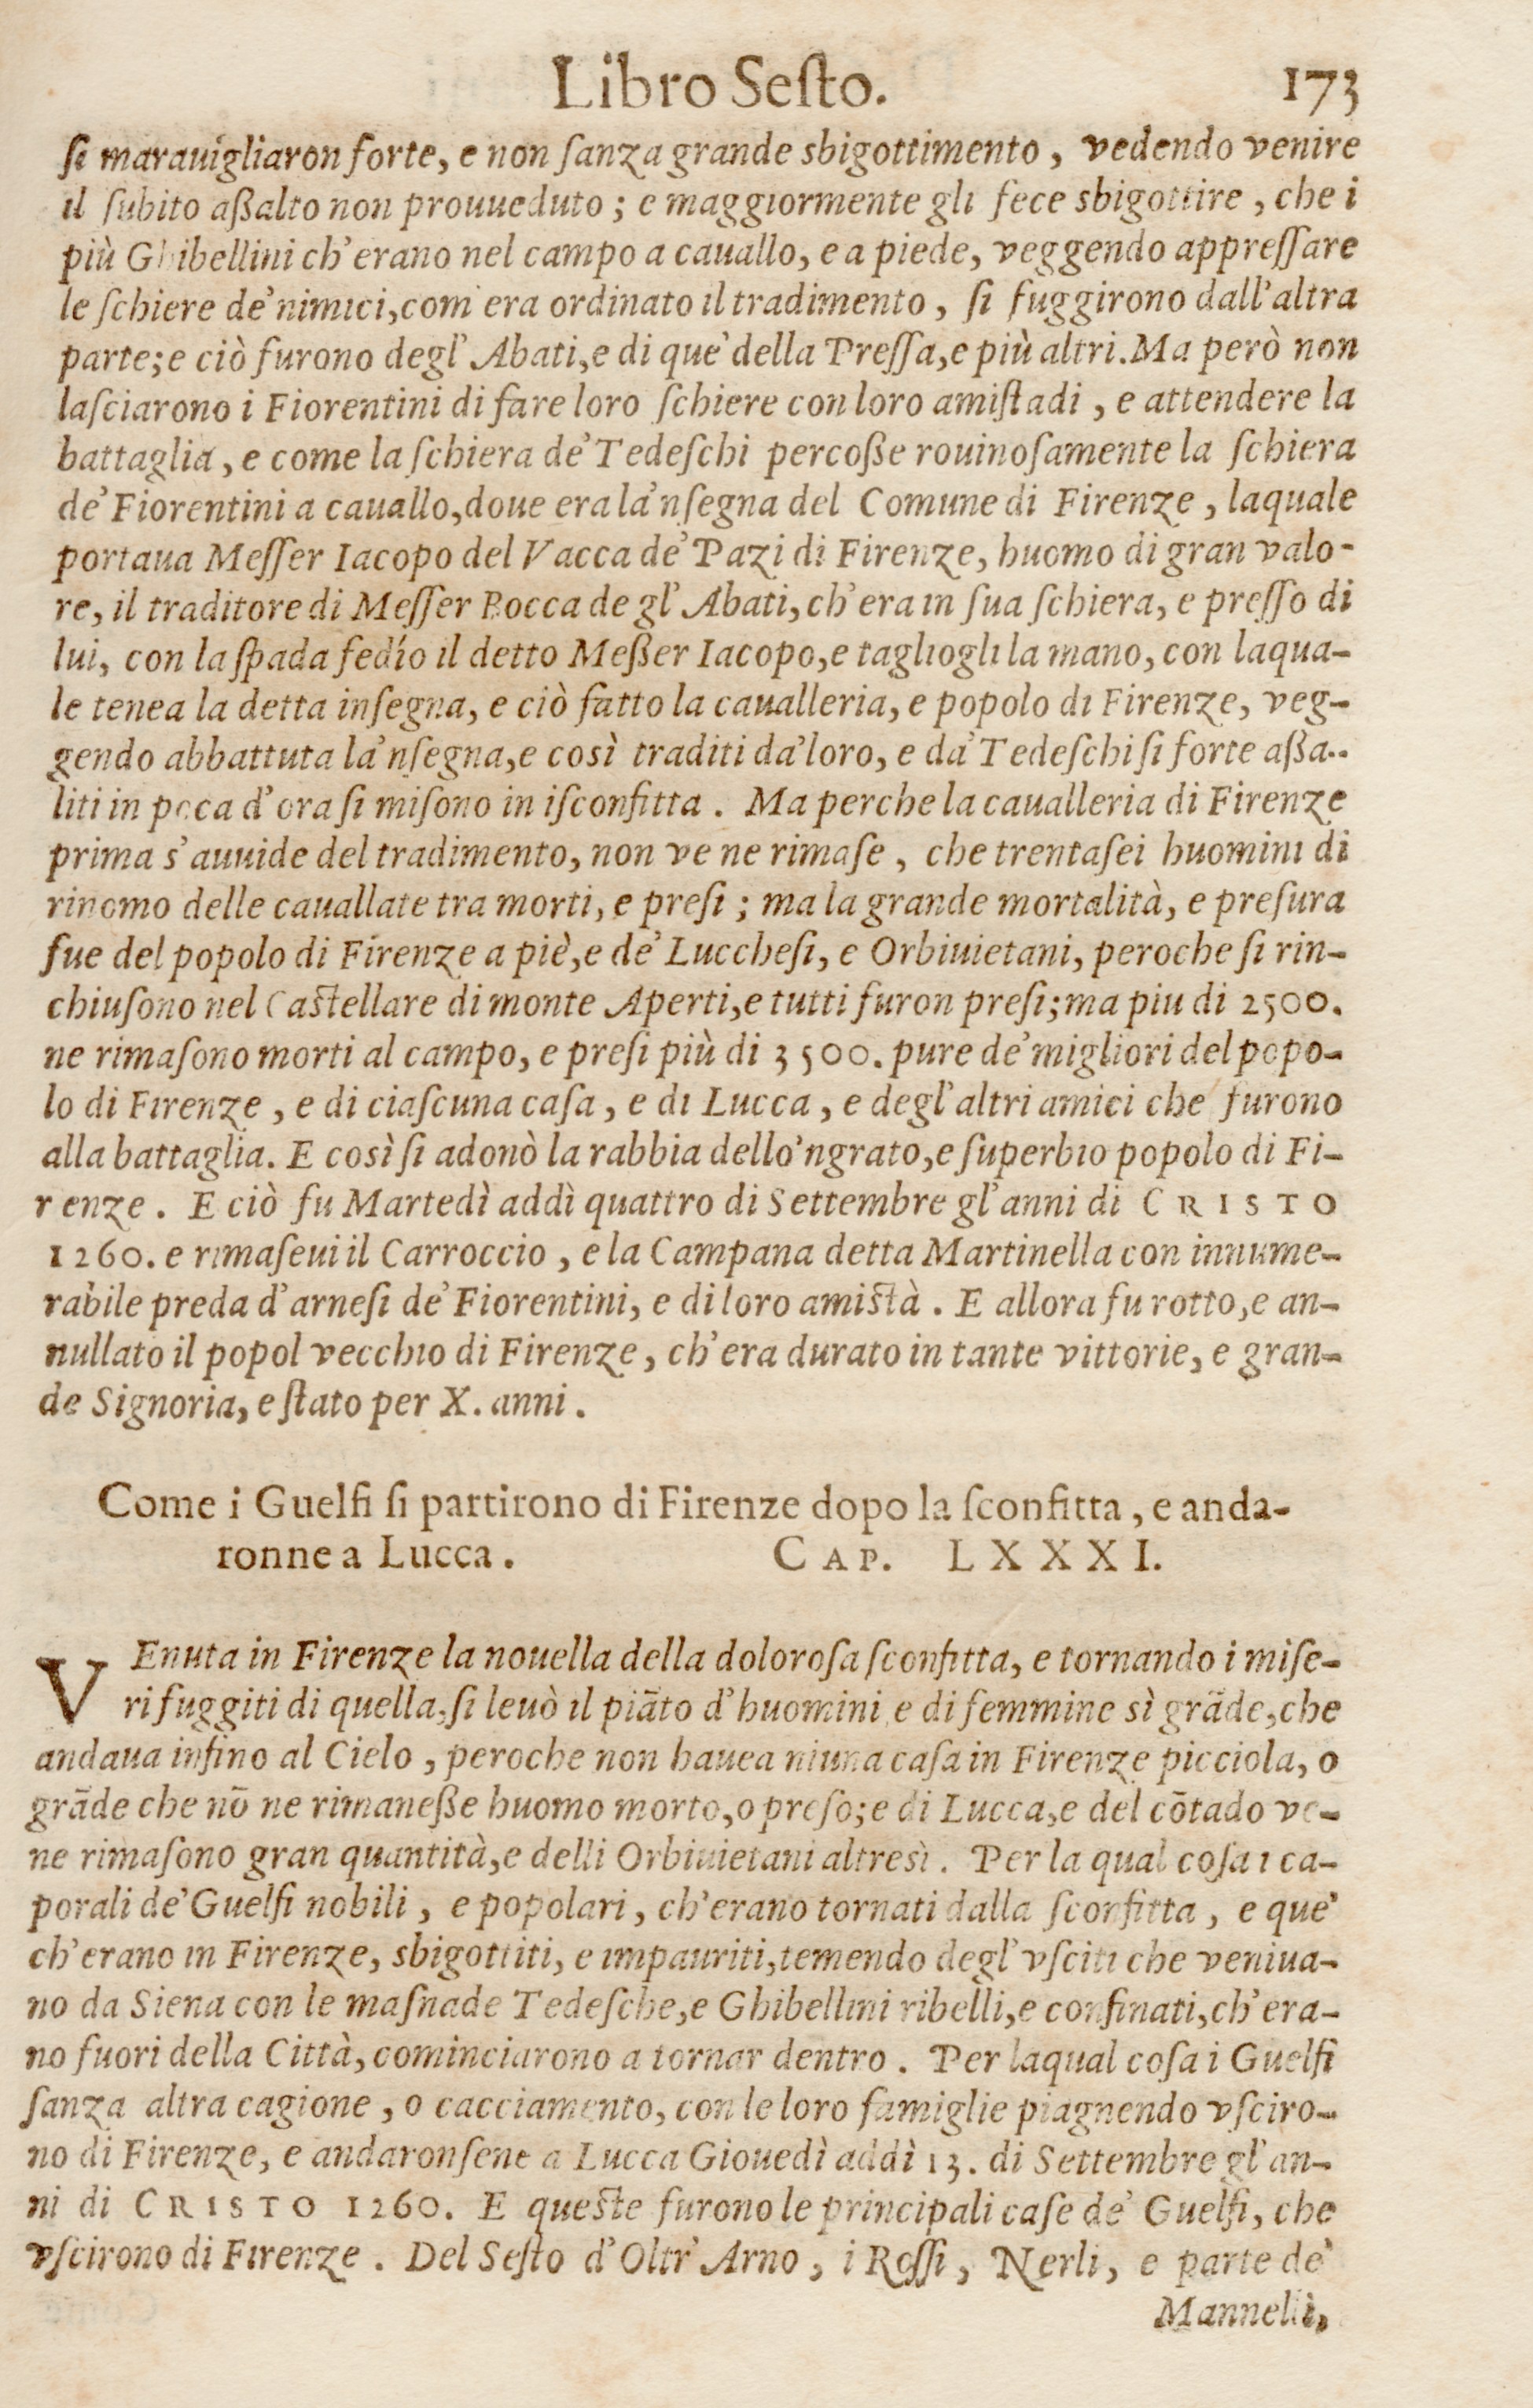 Libro Seſto. 173
ſi marauigliaron forte, e non ſanza grande sbigottimento, vedendo venire
il ſubito aßalto non prouueduto; e maggiormente gli fece sbigottire, che i
più Ghibellini ch'erano nel campo a cauallo, e a piede, veggendo appreſſare
le ſchiere de' nimici, com' era ordinato il tradimento, ſi fuggirono dall'altra
parte; e ciò furono degl' Abati, e di que' della Preſſa, e più altri. Ma però non
laſciarono i Fiorentini di fare loro ſchiere con loro amiſtadi, e attendere la
battaglia, e come la ſchiera de' Tedeſchi percoße rouinoſamente la ſchiera
de' Fiorentini a cauallo, doue era la'nſegna del Comune di Firenze, laquale
portaua Meſſer Iacopo del Vacca de' Pazi di Firenze, huomo di gran valo-
re, il traditore di Meſſer Bocca de gl' Abati, ch'era in ſua ſchiera, e preſſo di
lui, con la ſpada fedío il detto Meßer Iacopo, e tagliogli la mano, con laqua-
le tenea la detta inſegna, e ciò fatto la caualleria, e popolo di Firenze, veg-
gendo abbattuta la'nſegna, e così traditi da'loro, e da' Tedeſchi ſi forte aßa-
liti in poca d' ora ſi miſono in iſconfitta. Ma perche la caualleria di Firenze
prima s'auuide del tradimento, non ve ne rimaſe, che trentaſei huomini di
rinomo delle cauallate tra morti, e preſi; ma la grande mortalità, e preſura
fue del popolo di Firenze a piè, e de' Luccheſi, e Orbiuietani, peroche ſi rin-
chiuſono nel Caſtellare di monte Aperti, e tutti furon preſi; ma piu di 2500.
ne rimaſono morti al campo, e preſi più di 3500. pure de' migliori del popo-
lo di Firenze, e di ciaſcuna caſa, e di Lucca, e degl'altri amici che furono
alla battaglia. E così ſi adonò la rabbia dello'ngrato, e ſuperbio popolo di Fi-
renze. E ciò fu Martedì addì quattro di Settembre gl'anni di CRISTO
1260. e rimaſeui il Carroccio, e la Campana detta Martinella con innume-
rabile preda d'arneſi de' Fiorentini, e di loro amiſtà. E allora fu rotto, e an-
nullato il popol vecchio di Firenze, ch'era durato in tante vittorie, e gran-
de Signoria, e ſtato per X. anni.
Come i Guelfi ſi partirono di Firenze dopo la ſconfitta, e anda-
ronne a Lucca. CAP. LXXXI.
VEnuta in Firenze la nouella della doloroſa ſconfitta, e tornando i miſe-
ri fuggiti di quella, ſi leuò il piāto d'huomini e di femmine sì grāde, che
andaua infino al Cielo, peroche non hauea niuna caſa in Firenze picciola, o
grāde che nō ne rimaneße huomo morto, o preſo; e di Lucca, e del cōtado ve-
ne rimaſono gran quantità, e delli Orbiuietani altresì. Per la qual coſa i ca-
porali de' Guelfi nobili, e popolari, ch'erano tornati dalla ſconfitta, e que'
ch'erano in Firenze, sbigottiti, e impauriti, temendo degl'vſciti che veniua-
no da Siena con le maſnade Tedeſche, e Ghibellini ribelli, e confinati, ch'era-
no fuori della Città, cominciarono a tornar dentro. Per laqual coſa i Guelfi
ſanza altra cagione, o cacciamento, con le loro famiglie piagnendo vſciro-
no di Firenze, e andaronſene a Lucca Giouedì addì 13. di Settembre gl'an-
ni di CRISTO 1260. E queſte furono le principali caſe de' Guelfi, che
vſcirono di Firenze. Del Seſto d'Oltr'Arno, i Roſſi, Nerli, e parte de'
Mannelli,